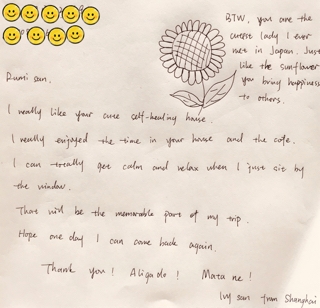 BTW, you are the
cutest lady I ever
met in Japan. Just
like the sunflower
you bring happiness
to others.
Rumi san.
I really like your cute self-healing house.
I really enjoyed the time in your house and the cafe.
I can totally get calm and relax when I just sit by
the window.
That will be the memorable part of my trip.
Hope one day I can come back again.
Thank you! Aligado! Mata ne!
Ivy san from Shanghai